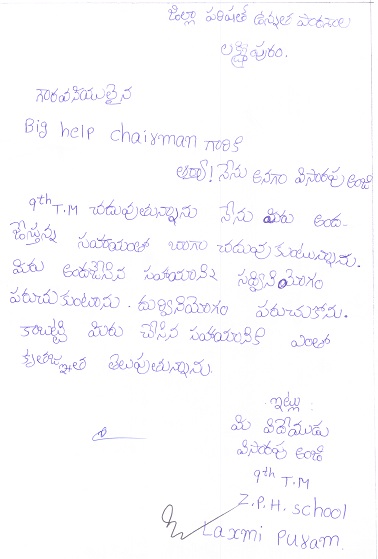 జిల్లా పరిషత్ ఉన్నత పాఠశాల
లక్ష్మీపురం.
గౌరవనీయులైన
Big help chairman గారికి
ఆర్యా! నేను అనగా విసారపు అంజి
9th T.M చదువుతున్నాను నేను మీరు అంద-
జేస్తున్న సహాయంతో బాగా చదువుకుంటున్నాను.
మీరు అందజేసిన సహాయాన్ని సద్వినియోగం
పరుచుకుంటాను. దుర్వినియోగం పరుచుకోను.
కాబట్టి మీరు చేసిన సహాయానికి ఎంతో
కృతజ్ఞత తెలుపుతున్నాను.
ఇట్లు
మీ విధేయుడు
విసారపు అంజి
9th T.M
Z.P.H. school
Laxmi Puram.